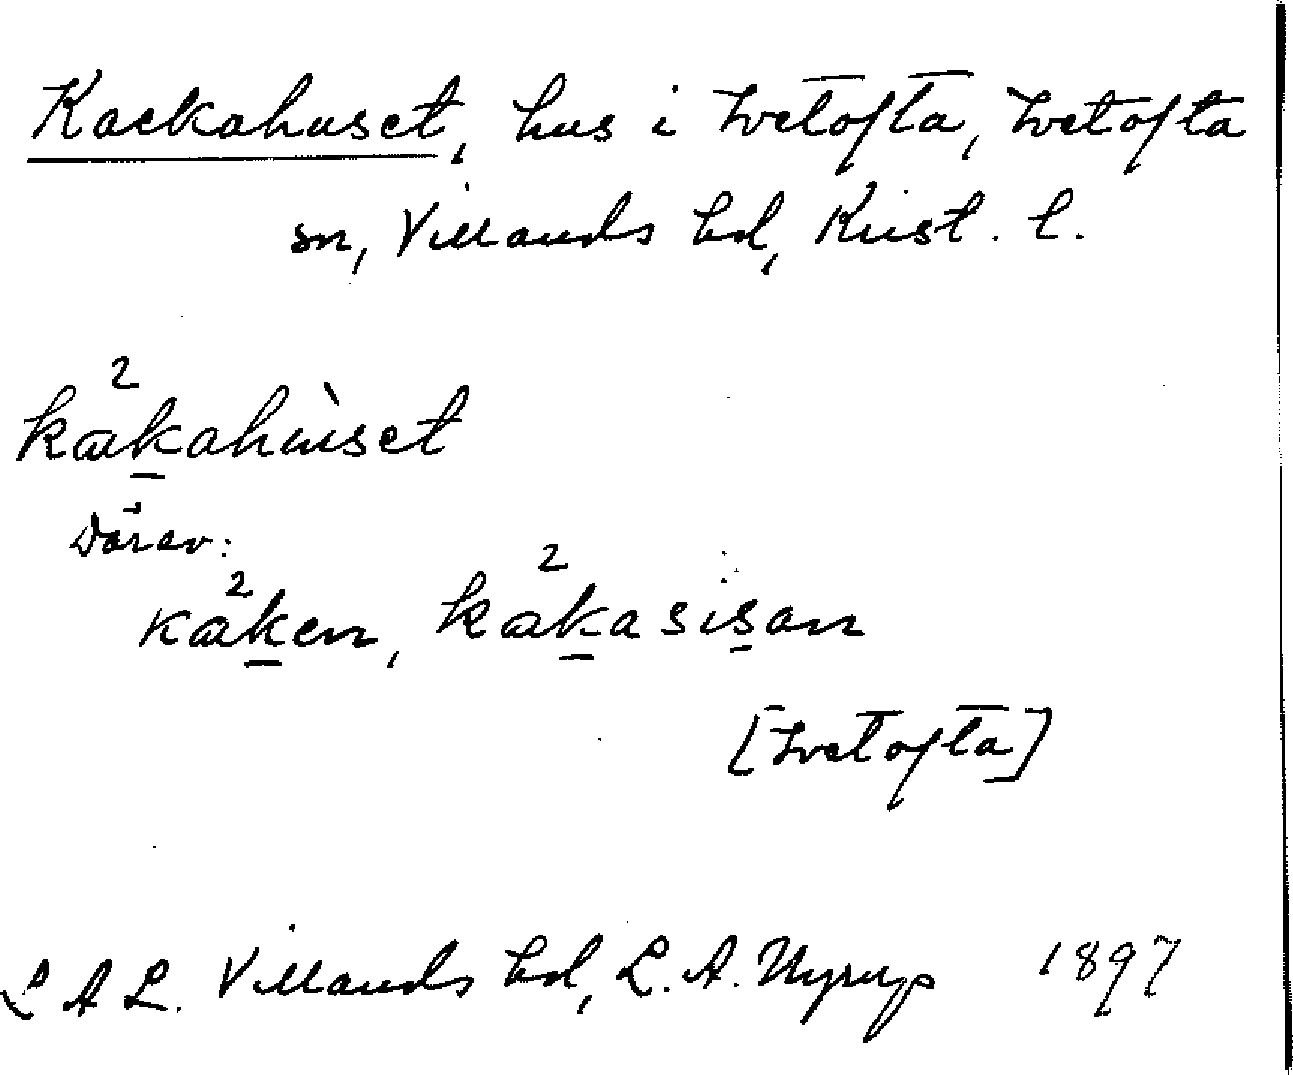 Kackahuset, hus i Ivetofta, Ivetofta
sn, Villands hd, Krist. l.
2
kakahùset
Därav:
2 2
kaken, kakasisan
[Ivetofta]
L A L. Villands hd, L. A. Nyrup 1897